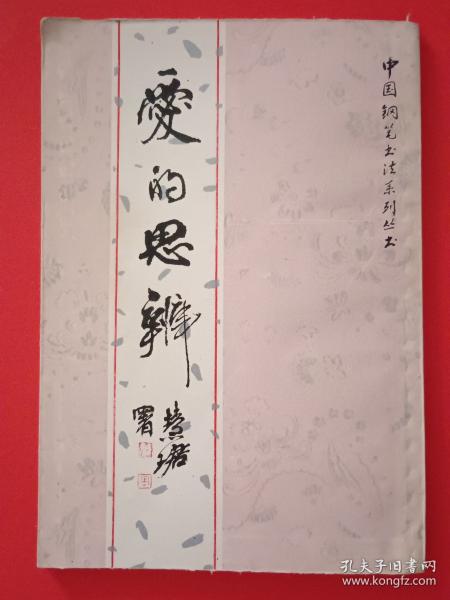 中国钢笔书法系列丛书
愛的思辨
慧珺
署
孔夫子旧书网
www.kongfz.com